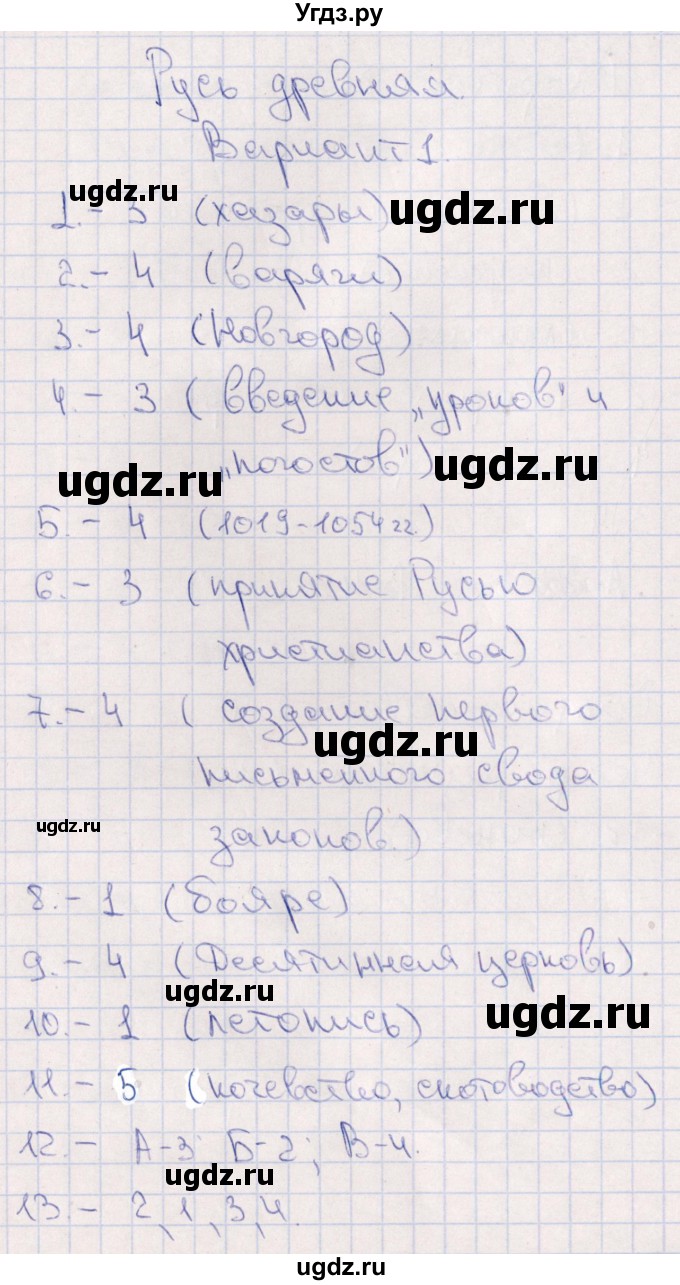 Угдз.ру
Русь древняя.
Вариант 1.
1.- 3 (хазары)
ugdz.ru ugdz.ru
2.- 4 (варяги)
3.- 4 (Новгород)
4.- 3 ( введение „уроков" и
„погостов")
ugdz.ru ugdz.ru
5.- 4 (1019-1054 гг.)
6.- 3 (принятие Русью
христианства)
7.- 4 ( создание первого
ugdz.ru
письменного свода
ugdz.ru
законов.)
8.- 1 (бояре)
9.- 4 (Десятинная церковь).
ugdz.ru
10.- 1 (летопись)
ugdz.ru
11.- 5 (кочевство, скотоводство)
12.- А-3; Б-2; В-4.
ugdz.ru
13.- 2, 1, 3, 4.
ugdz.ru